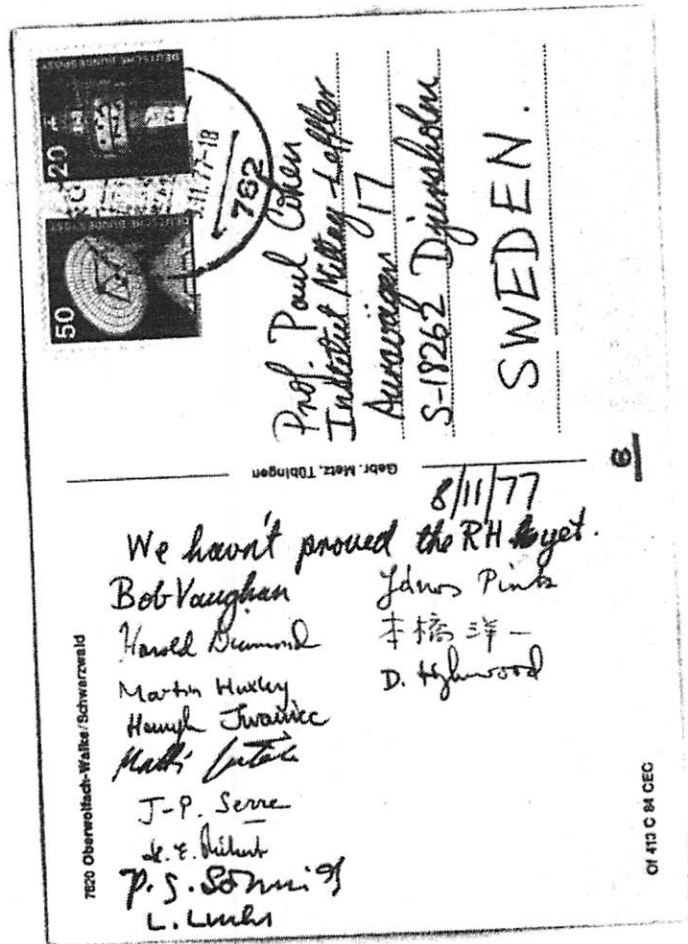 50
20
DEUTSCHE BUNDESPOST
DEUTSCHE BUNDESPOST
.11.77-18
782
Prof. Paul Cohen
Institut Mittag-Leffler
Auravägen 17
S-18262 Djursholm
SWEDEN.
Gebr. Metz, Tübingen
8/11/77
We havn't proved the RH yet.
Bob Vaughan
Harold Diamond
Martin Huxley
Henryk Iwaniec
Matti Jutila
J-P. Serre
H.-E. Richert
P.G. Schmidt
L. Lucht
János Pintz
本橋洋一
D.
7620 Oberwolfach-Walke/Schwarzwald
Of 413 C 84 CEC